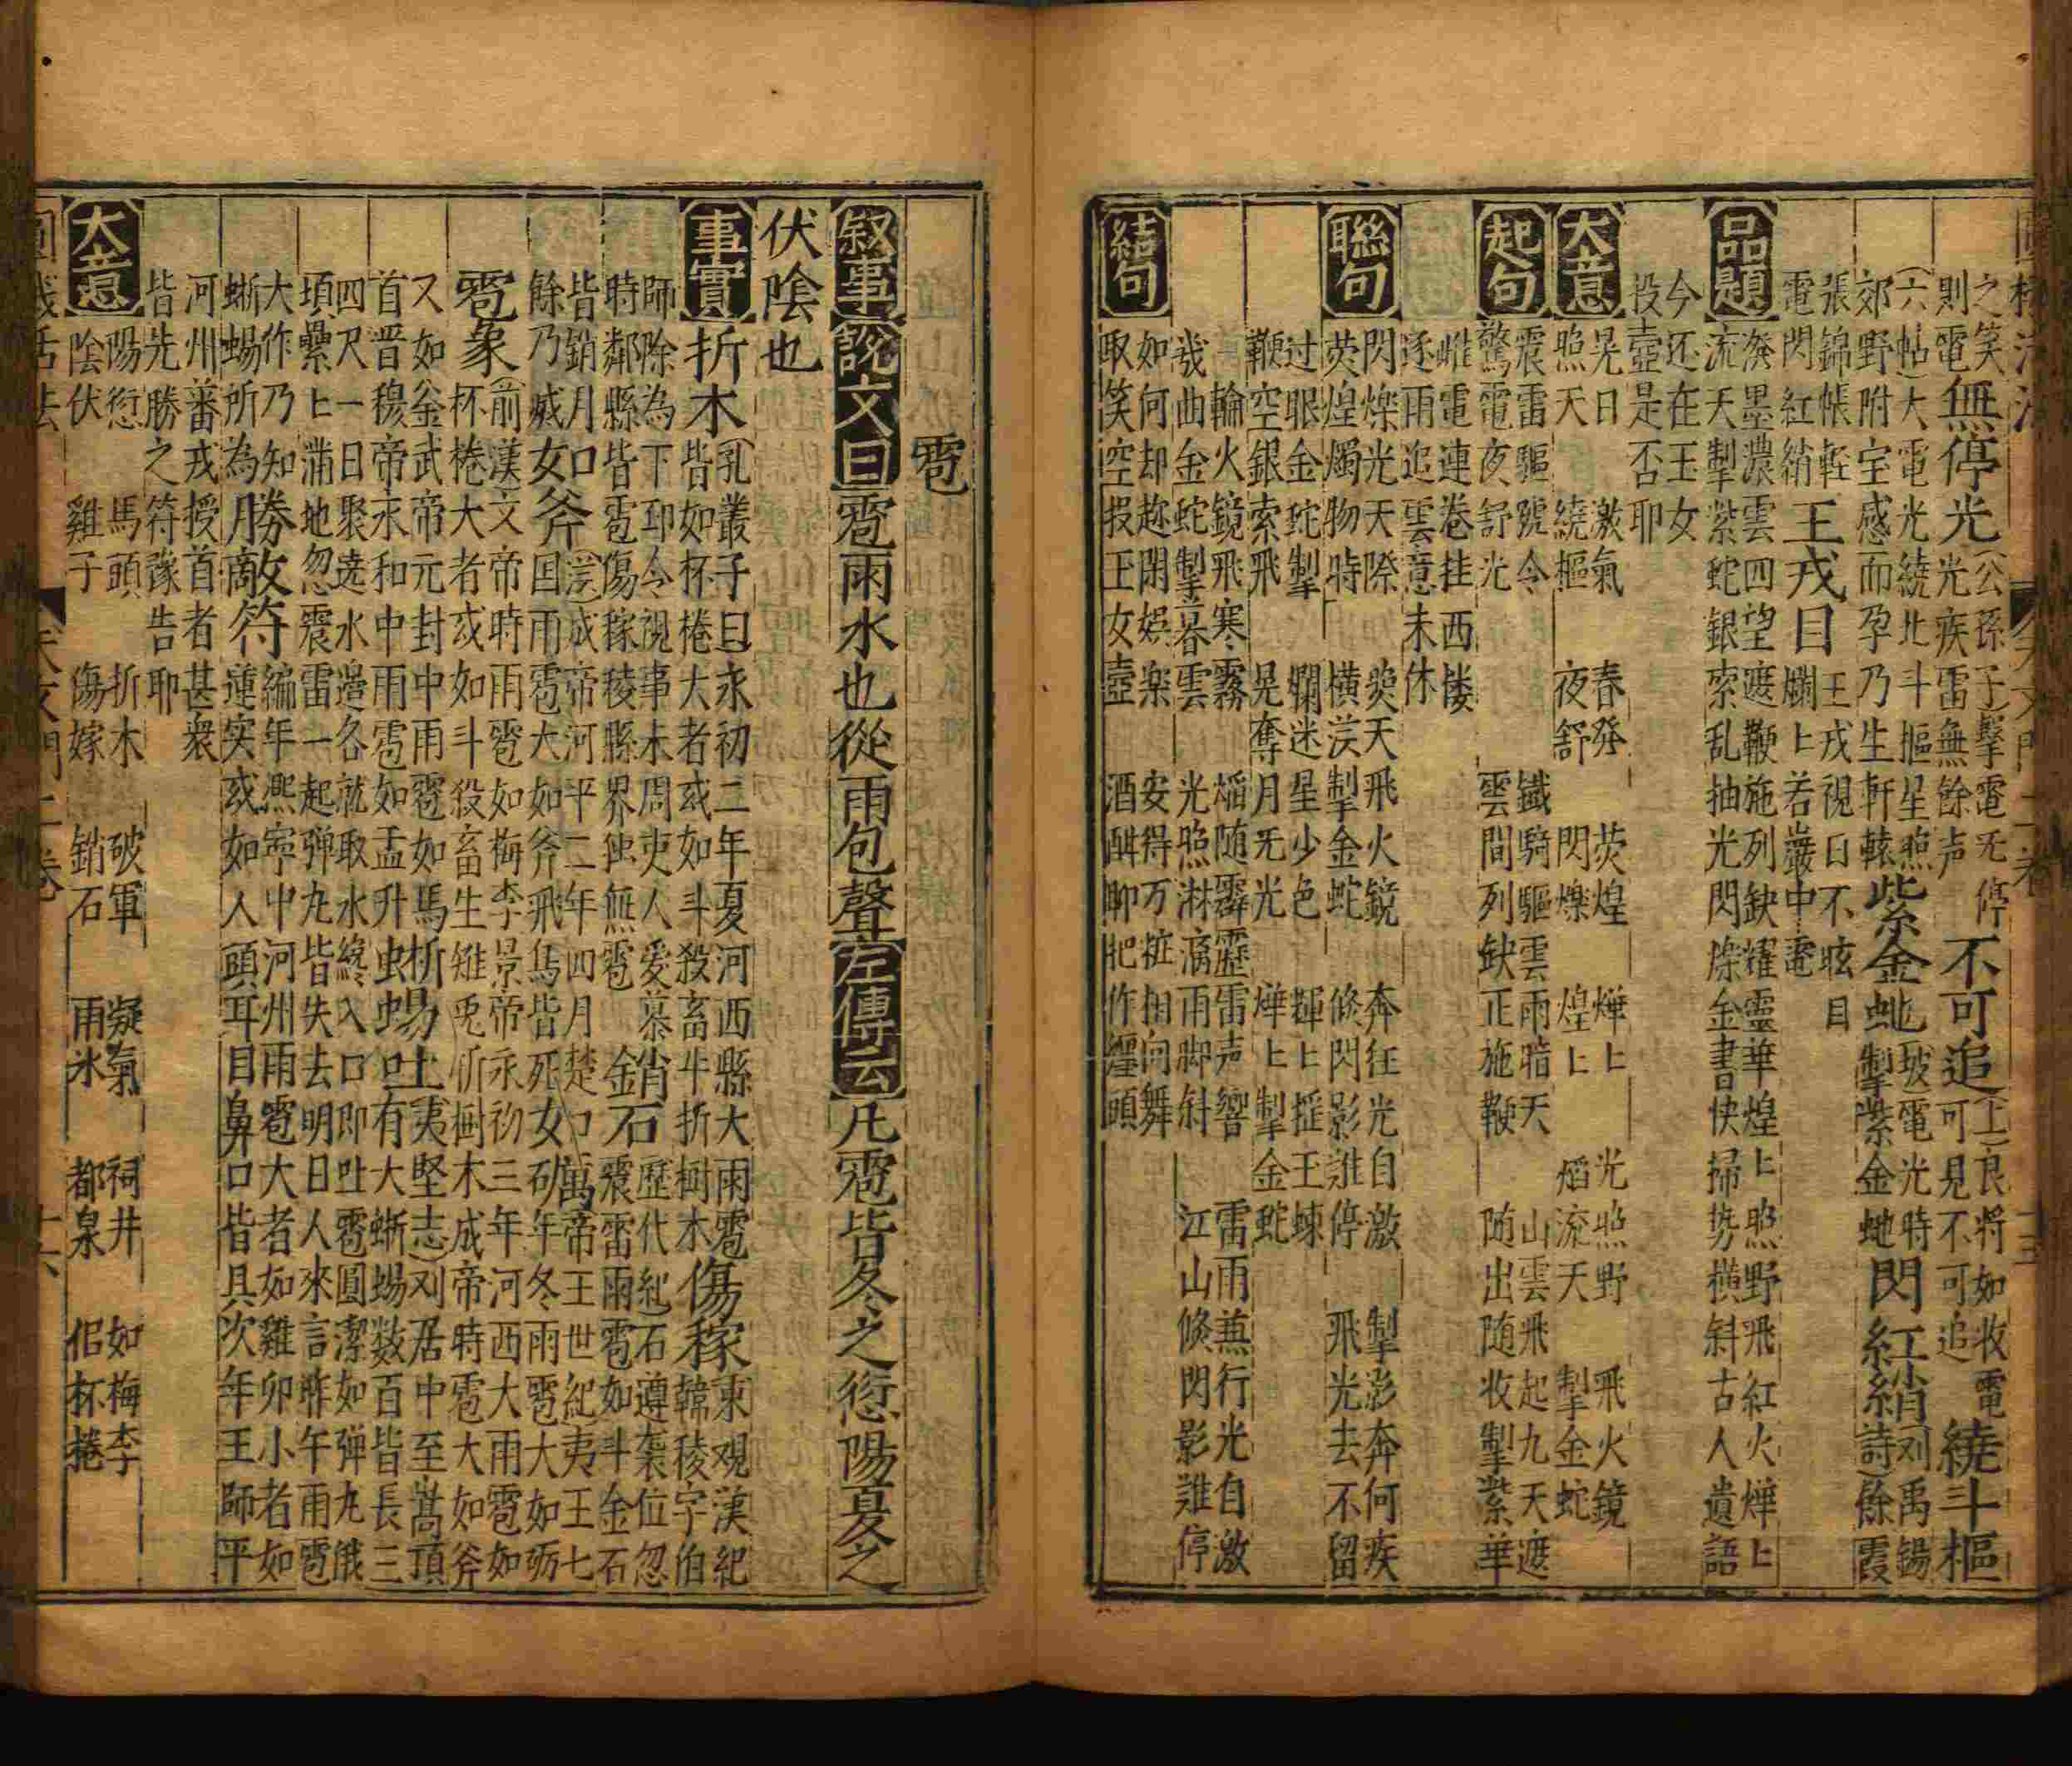 之笑
則電無停光(公孫子)擊電无停
光疾雷無餘声不可追(上)良將如收電
可見不可追繞斗樞
(六帖)大電光繞北斗樞星照
郊野附宝感而孕乃生軒轅紫金虵(坡)電光時
掣紫金虵閃紅綃(刘禹錫
詩)餘霞
張錦帳軽
電閃紅綃王戎目王戎視日不眩目
爛上若巖中電
品題
發墨濃雲四望遮鞭施列缺耀靈華煌上照野飛紅火燁上
流天掣紫蛇銀索乱抽光閃爍金書快掃势橫斜古人遺語
今还在玉女
投壺是否耶
大意
晃日 激氣 春發 荧煌 燁上 光照野 飛火鏡
照天 繞樞 夜舒 閃爍 煌上 熖流天 掣金蛇
起句
震雷驅號令 鐵騎驅雲雨暗天 山雲飛起九天遮
驚電夜舒光 雲間列缺正施鞭 随出随收掣紫華
雌電連卷挂西楼
逐雨追雲意未休
聯句
閃爍光天際 奐天飛火鏡 奔狂光自激 掣影奔何疾
荧煌燭物時 横漢掣金蛇 倏閃影誰停 飛光去不留
过眼金蛇掣 爛迷星少色 輝上摇王竦
鞭空銀索飛 晃奪月无光 燁上掣金蛇
輪火鏡飛寒霧 熖随霹靂雷声響 雷雨兼行光自激
㡬曲金蛇掣暮雲 光照淋漓雨脚斜 江山倏閃影誰停
結句
如何却趂閑娯楽 安得万粧相向舞
取笑空投玉女壺 酒酣聊把作纏頭
雹
叙事 説文曰雹雨水也從雨包聲左傳云凡雹皆冬之愆陽夏之
伏陰也
事實 折木(孔叢子曰)永初二年夏河西縣大雨雹
皆如杯棬大者或如斗殺畜牛折樹木傷稼東观漢紀
韓稜字伯
師除為下邳令視事未周吏人爱慕
時鄰縣皆雹傷稼稜縣界独無雹銷金石歷代紀)石遵袭位忽
震雷雨雹如斗金石
皆銷月
餘乃滅女口斧(漢)成帝河平二年四月楚
国雨雹大如斧飛鳥皆死女砺萬(帝王世紀)夷王七
年冬雨雹大如砺
雹象(前漢)文帝時雨雹如梅李景帝永初三年河西大雨雹如
杯棬大者或如斗殺畜生雉兎折樹木成帝時雹大如斧
又如釜武帝元封中雨雹如馬
首晋穆帝永和中雨雹如盂升蜥蜴吐(夷堅志)刘居中至嵩頂
有大蜥蜴数百皆長三
四尺一日聚遶水邉各就取水纔入口即吐雹圓潔如弹丸俄
頃纍上满地忽震雷一起弹丸皆失去明日人來言昨午雨雹
大作乃知
蜥蜴所為勝敵符編年熈寧中河州雨雹大者如雞卵小者如
蓮实或如人頭耳目鼻口皆具次年王師平
河州蕃戎授首者甚衆
皆先勝之符豫告耶
大意
陽愆 馬頭 折木 破軍 凝氣 祠井 如梅李
陰伏 雞子 傷嫁 銷石 雨氷 都泉 侣杯棬